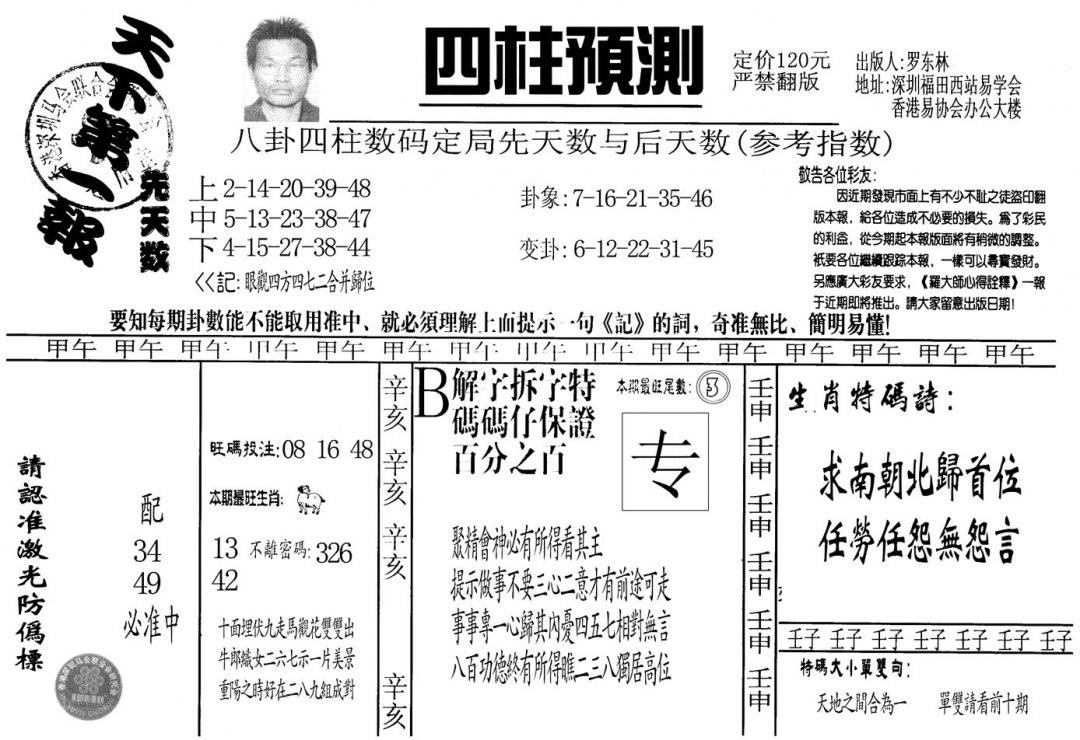 天下第一報
四柱預測
定价120元
严禁翻版
出版人:罗东林
地址:深圳福田西站易学会
香港易协会办公大楼
八卦四柱数码定局先天数与后天数(参考指数)
先天数
上 2-14-20-39-48
中 5-13-23-38-47
下 4-15-27-38-44
<<記: 眼觀四方四七二合并歸位
卦象: 7-16-21-35-46
变卦: 6-12-22-31-45
敬告各位彩友:
因近期發現市面上有不少不耻之徒盜印翻
版本報，給各位造成不必要的損失。爲了彩民
的利益，從今期起本報版面將有稍微的調整。
衹要各位繼續跟踪本報，一樣可以尋寶發財。
另應廣大彩友要求，《羅大師心得詮釋》一報
于近期即將推出。請大家留意出版日期!
要知每期卦數能不能取用准中、就必須理解上面提示一句《記》的詞，奇准無比、簡明易懂!
甲午 甲午 甲午 甲午 甲午 甲午 甲午 甲午 甲午 甲午 甲午 甲午 甲午 甲午 甲午
請認准激光防僞標
配
34
49
必准中
旺碼投注: 08 16 48
本期最旺生肖:
13 不離密碼: 326
42
十面埋伏九走馬觀花雙雙出
牛郎織女二六七示一片美景
重陽之時好在二八九組成對
辛亥 辛亥 辛亥 辛亥
B 解字拆字特
碼碼仔保證
百分之百
本期最旺尾數: 3
专
聚精會神必有所得看其主
提示做事不要三心二意才有前途可走
事事專一心歸其內憂四五七相對無言
八百功德終有所得瞧二三八獨居高位
壬申 壬申 壬申 壬申 壬申 壬申
生肖特碼詩:
求南朝北歸首位
任勞任怨無怨言
壬子 壬子 壬子 壬子 壬子 壬子 壬子
特碼大小單雙句:
天地之間合為一 單雙請看前十期